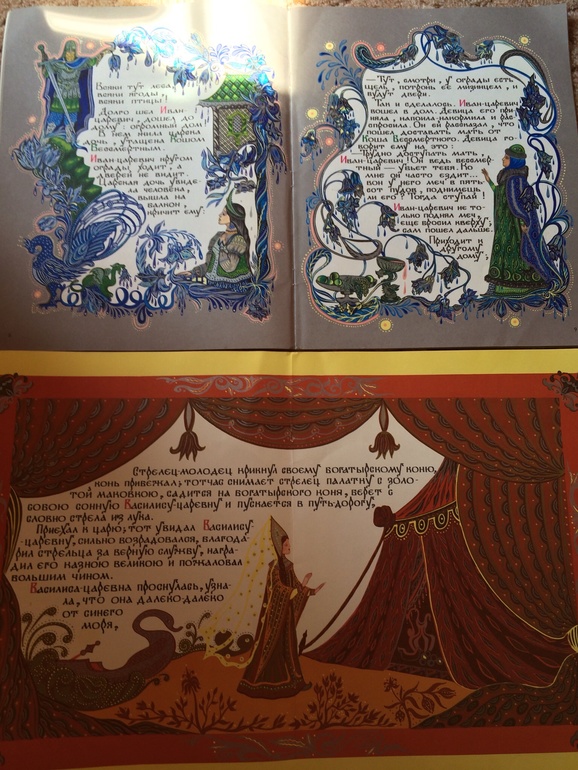 Всяки тут леса,
всяки ягоды,
всяки птицы!
Долго шел Иван-
царевич, дошел до
дому: огромный дом!
В нем жила царска
дочь, утащена Кошом
Бессмертным,
Иван-царевич кругом
ограды ходит, а
дверей не видит.
Царская дочь увиде-
ла человека,
вышла на
балкон,
кричит ему:
—Тут, смотри, у ограды есть
щель, потронь ее мизинцем, и
будут двери.
Так и сделалось. Иван-царевич
вошел в дом. Девица его при-
няла, напоила-накормила и рас-
спросила. Он ей рассказал, что
пошел доставать мать от
Коша Бессмертного. Девица го-
ворит ему на это:
—Трудно доступать мать,
Иван-царевич! Он ведь бессмерт-
ный — убьет тебя. Ко
мне он часто ездит...
вон у него меч в пять-
сот пудов, поднимешь
ли его? Тогда ступай!
Иван-царевич не то-
лько поднял меч,
еще бросил кверху;
сам пошел дальше.
Приходит к
другому
дому;
Стрелец-молодец крикнул своему богатырскому коню,
конь прибежал; тотчас снимает стрелец палатку с золо-
той маковкою, садится на богатырского коня, берет с
собою сонную Василису-царевну и пускается в путь-дорогу,
словно стрела из лука.
Приехал к царю; тот увидал Василису-
царевну, сильно возрадовался, благода-
рил стрельца за верную службу, награ-
дил его казною великою и пожаловал
большим чином.
Василиса-царевна проснулась, узна-
ла, что она далеко-далеко
от синего
моря,